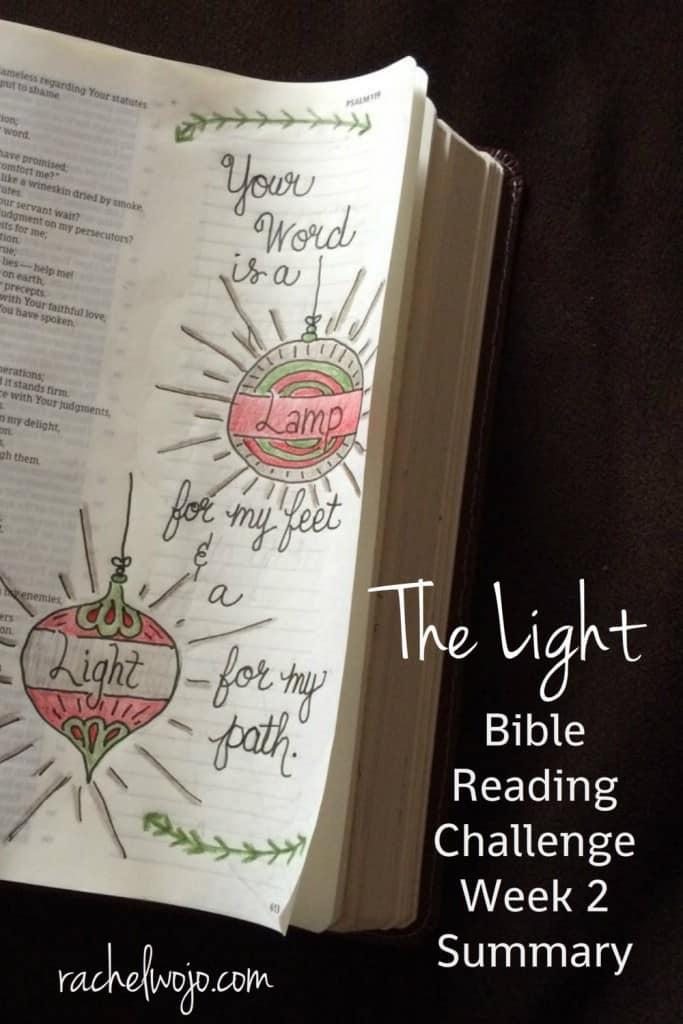 ameless regarding Your statutes
put to shame.
PSALM 119
word.
have promised;
comfort me?"
like a wineskin dried by smoke,
our servant wait?
judgment on my persecutors?
its for me;
lies — help me!
on earth,
precepts.
with Your faithful love,
You have spoken.
it stands firm.
with Your judgments,
my delight,
gh them.
my enemies,
Your
Word
is a
Lamp
for my feet
&
a
Light
for my
path.
The Light
Bible
Reading
Challenge
Week 2
Summary
rachelwojo.com